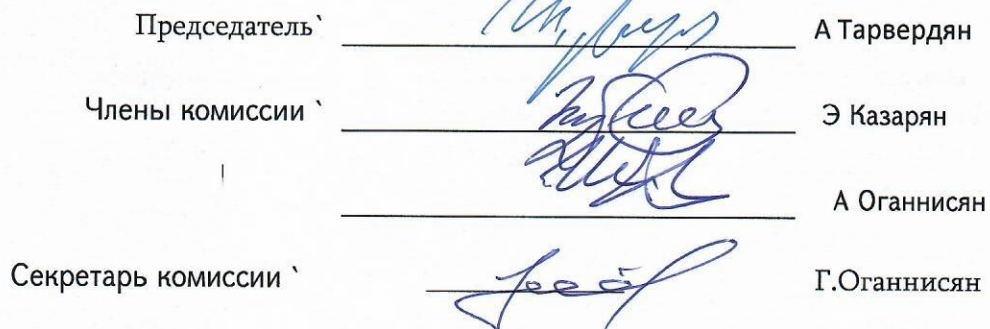 Председатель՝ А Тарвердян
Члены комиссии ՝ Э Казарян
А Оганнисян
Секретарь комиссии ՝ Г.Оганнисян